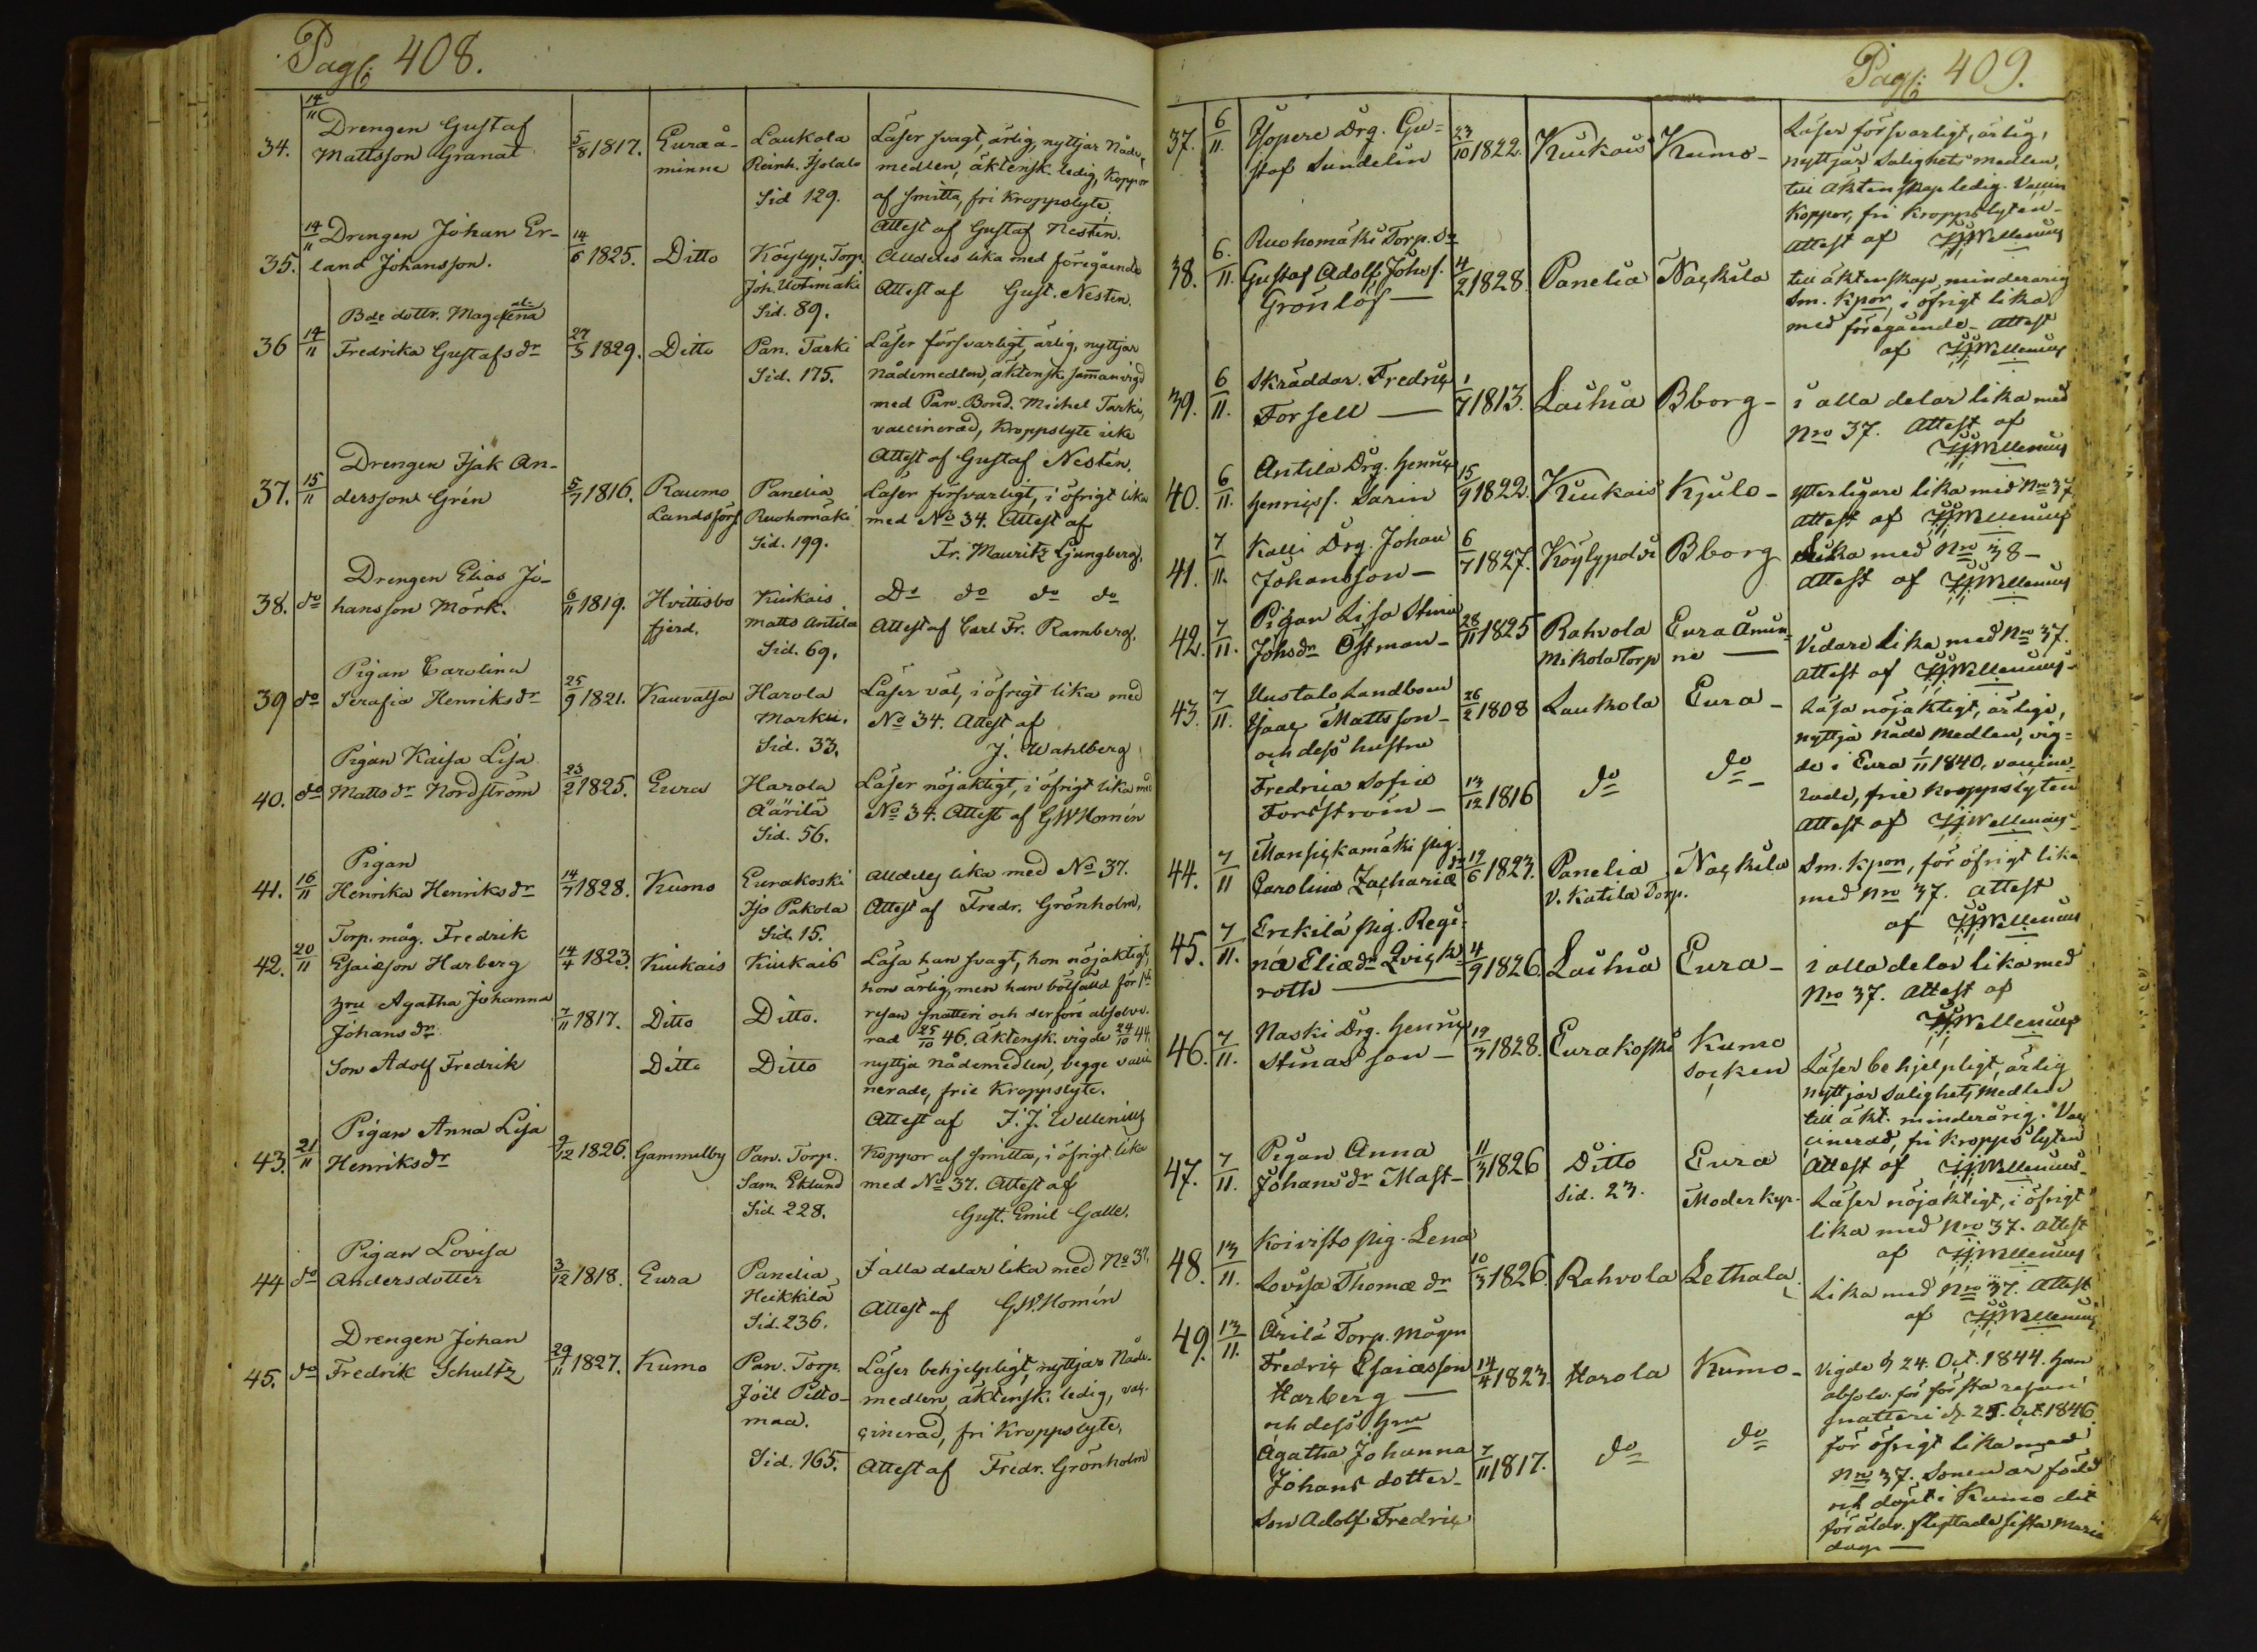 Pag: 408.
34. 14/11 Drengen Gustaf
Mattsson Granat 5/8 1817. Euraå-
minne Laukola
Reinh. Isotalo
Sid 129. Läser svagt, ärlig, nyttjar Nåde-
medlen, äktensk. ledig, Koppor
af smitta, fri Kroppslyte.
Attest af Gustaf Nestén.
35. 14/11 Drengen Johan Er-
land Johansson. 14/6 1825. Ditto Köylyp. Torp.
Joh. Uotimäki
Sid. 89. Alldeles lika med föregående
Attest af Gust. Nestén.
36 14/11 Bde dottr. Magdalena
Fredrika Gustafsdr 27/3 1829. Ditto Pan. Tarki
Sid. 175. Läser försvarligt, ärlig, nyttjar
nådemedlen, äktensk. sammanvigd
med Pan. Bond. Michel Tarki,
vaccinerad, Kroppslyte icke
Attest af Gustaf Nestén.
37. 15/11 Drengen Isak An-
dersson Grén 5/7 1816. Raumo
Landsförs Panelia
Ruohomäki
Sid. 199. Läser försvarligt, i öfrigt lika
med No 34. Attest af
Fr. Mauritz Ljungberg.
38. do Drengen Elias Jo-
hansson Mörk. 6/11 1819. Hvittisbo
fjerd. Kiukais
Matts Antila
Sid. 69. Do do do do
Attest af Carl Fr. Ramberg.
39 do Pigan Carolina
Serafia Henriksdr 25/9 1821. Kauvatsa Harola
Markui.
Sid. 33. Läser väl, i öfrigt lika med
No 34. Attest af
J. Wahlberg
40. do Pigan Kaisa Lisa
Mattsdr Nordström 23/2 1825. Eura Harola
Äärilä
Sid. 56. Läser nöjaktigt, i öfrigt lika med
No 34. Attest af GW Homén
41. 16/11 Pigan
Henrika Henriksdr 14/7 1828. Kumo Eurakoski
Iso Pakola
Sid. 15. Alldeles lika med No 37.
Attest af Fredr. Grönholm.
42. 20/11 Torp. måg. Fredrik
Esaiæson Harberg 14/4 1823. Kiukais Kiukais Läsa han svagt, hon nöjaktigt,
hon ärlig, men han bötfälld för 1sta
resan snatteri och derföre absolve-
Hru Agatha Johanna
Johansdr 7/11 1817. Ditto Ditto. rad 25/10 46. Äktensk. vigde 24/10 44,
Son Adolf Fredrik Ditto Ditto nyttja nådemedlen, begge vacci-
nerade, frie Kroppslyte.
Attest af F. J. Wellenius
43. 21/11 Pigan Anna Lisa
Henriksdr 9/12 1826. Gammelby Pan. Torp.
Sam. Eklund
Sid. 228. Koppor af smitta, i öfrigt lika
med No 37. Attest af
Gust. Emil Galle.
44 do Pigan Lovisa
Andersdotter 3/12 1818. Eura Panelia
Heikkilä
Sid. 236. I alla delar lika med No 37.
Attest af GW. Homén
45. do Drengen Johan
Fredrik Schultz 29/11 1827. Kumo Pan. Torp.
Joël Pilto-
maa.
Sid. 165. Läser behjelpligt, nyttjar Nåde-
medlen, äktensk. ledig, vac-
cinerad, fri Kroppslyte,
Attest af Fredr. Grönholm
Pag: 409.
37. 6/11. Isopere Drg. Gu-
staf Sundelin 23/10 1822. Kiukais Kumo - Läser försvarligt, ärlig,
nyttjar Salighets medlen,
till äktenskap ledig. Vaccin
Koppor, fri Kroppslyten -
attest af FJWellenius
38. 6./11. Ruohomäki Torp. Sn
Gustaf Adolf Johss.
Grönlöf — 4/2 1828. Panelia Nackila till äktenskap minderårig
Sm. Kpor, i öfrigt lika
med föregående - attest
af FJWellenius
39. 6/11. Skräddar. Fredric
Forsell — 1/7 1813. Laihia Bborg - i alla delar lika med
Nro 37. Attest af
FJWellenius
40. 6/11. Antila Drg. Henric
Henricss. Sarin 15/9 1822. Kiukais Kjulo - ytterligare lika med Nro 37
attest af FJWellenius
41. 7/11. Kalli Drg. Johan
Johansson — 6/7 1827. Köylypolvi Bborg Lika med Nro 38 -
attest af FJWellenius
42. 7/11. Pigan Lisa Stina
Johsdr Östman - 28/11 1825 Rahvola
Mikola Torp Eura Åmin-
ne — Vidare Lika med Nro 37.
attest af FJWellenius -
43. 7/11. Uustalo Landboen
Isaac Mattsson -
och dess hustru 26/2 1808 Laukola Eura - Läsa nöjaktigt, ärliga,
nyttja Nåde Medlen, vig-
de i Eura 1/11 1840, vaccine-
Fredrica Sofia
Forsström - 13/12 1816 do do - rade, frie Kroppslyten
attest af FJWellenius
44. 7/11 Mansickamäki pig.
Carolina Zachariædr 19/6 1823. Panelia
V. Katila Torp. Nackila Sm. kpon, för öfrigt lika
med Nro 37. attest
af FJWellenius
45. 7/11. Erckilä pig. Regi-
na Eliædr Qvick-
roth — 4/9 1826. Laihia Eura - i alla delar lika med
Nro 37. Attest af
FJWellenius
46. 7/11. Naski Drg. Henric
Stinas son - 19/3 1828. Eurakoski Kumo
Socken Läser behjelpligt, ärlig
nyttjar Salighets Medlen
till äkt. minderårig. Vac
cinerad, fri Kroppslyten
Attest af FJWellenius -
47. 7/11. Pigan Anna
Johansdr Mast - 11/3 1826 Ditto
Sid. 23. Eura
Moderkyr. Läser nöjaktigt, i öfrigt
lika med Nro 37. attest
af FJWellenius
48. 13/11. Koivisto pig. Lena
Lovisa Thomædr 10/3 1826. Rahvola Lethala. Lika med Nro 37. Attest
af FJWellenius
49. 13/11. Ärilä Torp. Mågen
Fredric Esaiæsson
Harberg —
och dess Hru 14/4 1823. Harola Kumo - Vigde d 24. Oct. 1844. han
absolv. för första resan
snatteri d. 25. Oct. 1846
Agatha Johanna
Johans dotter - 7/11 1817. do do för öfrigt lika med
Nro 37. Sonen är född
och döpt i Kumo dit
Son Adolf Fredric föräldr. flyttade sista Marie
dag —